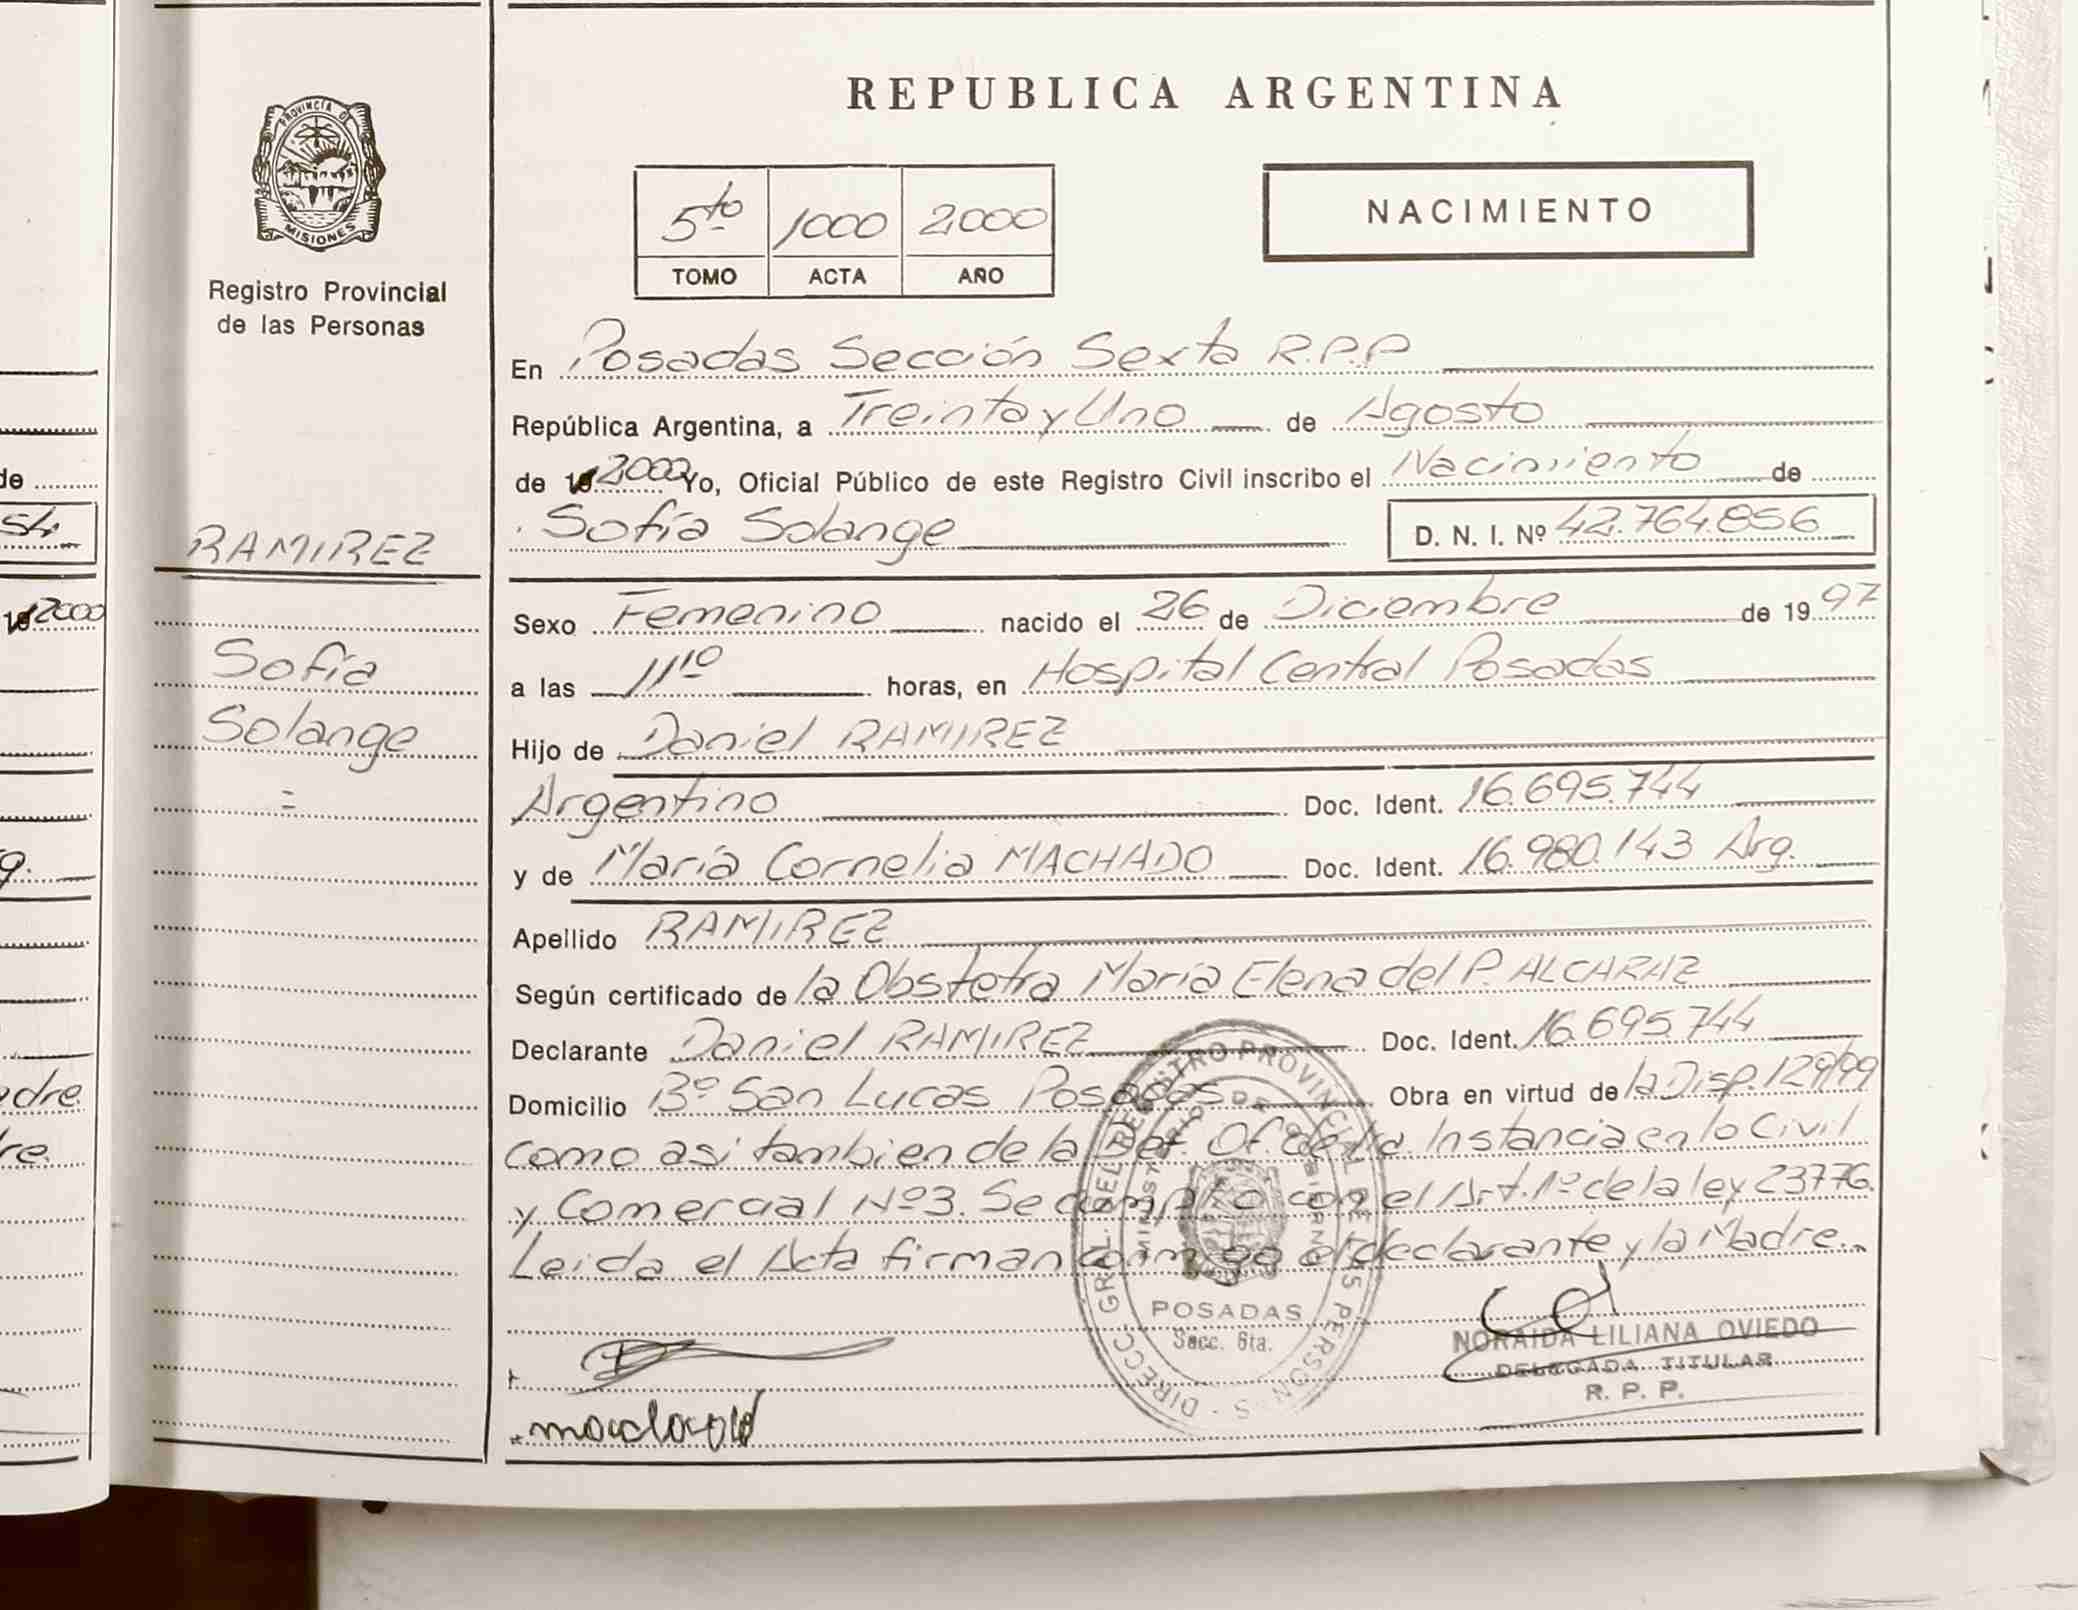 REPUBLICA ARGENTINA
PROVINCIA DE
MISIONES
Registro Provincial
de las Personas
5to 1000 2000
TOMO ACTA AÑO
NACIMIENTO
En Posadas Sección Sexta R.P.P
República Argentina, a Treinta y Uno de Agosto
de 2000 Yo, Oficial Público de este Registro Civil inscribo el Nacimiento de
Sofía Solange D. N. I. Nº 42.764.856
RAMIREZ
Sofía
Solange
Sexo Femenino nacido el 26 de Diciembre de 1997
a las 11 10 horas, en Hospital Central Posadas
Hijo de Daniel RAMIREZ
Argentino Doc. Ident. 16.695.744
y de María Cornelia MACHADO Doc. Ident. 16.980.143 Arg.
Apellido RAMIREZ
Según certificado de la Obstetra María Elena del P. ALCARAZ
Declarante Daniel RAMIREZ Doc. Ident. 16.695.744
Domicilio Bº San Lucas Posadas Obra en virtud de la Disp. 129/99
como asi tambien de la Def. Of. de Instancia en lo Civil
y Comercial Nº3. Se cumplio con el Art. 1º de la ley 23776.
Leida el Acta firman conmigo el declarante y la Madre.
DIRECC. GRAL. DEL REGISTRO PROVINCIAL DE LAS PERSONAS
MINISTERIO DE GOBIERNO
POSADAS
Secc. 6ta.
NORAIDA LILIANA OVIEDO
DELEGADA TITULAR
R. P. P.
de
54
2000
g.
adre
re.